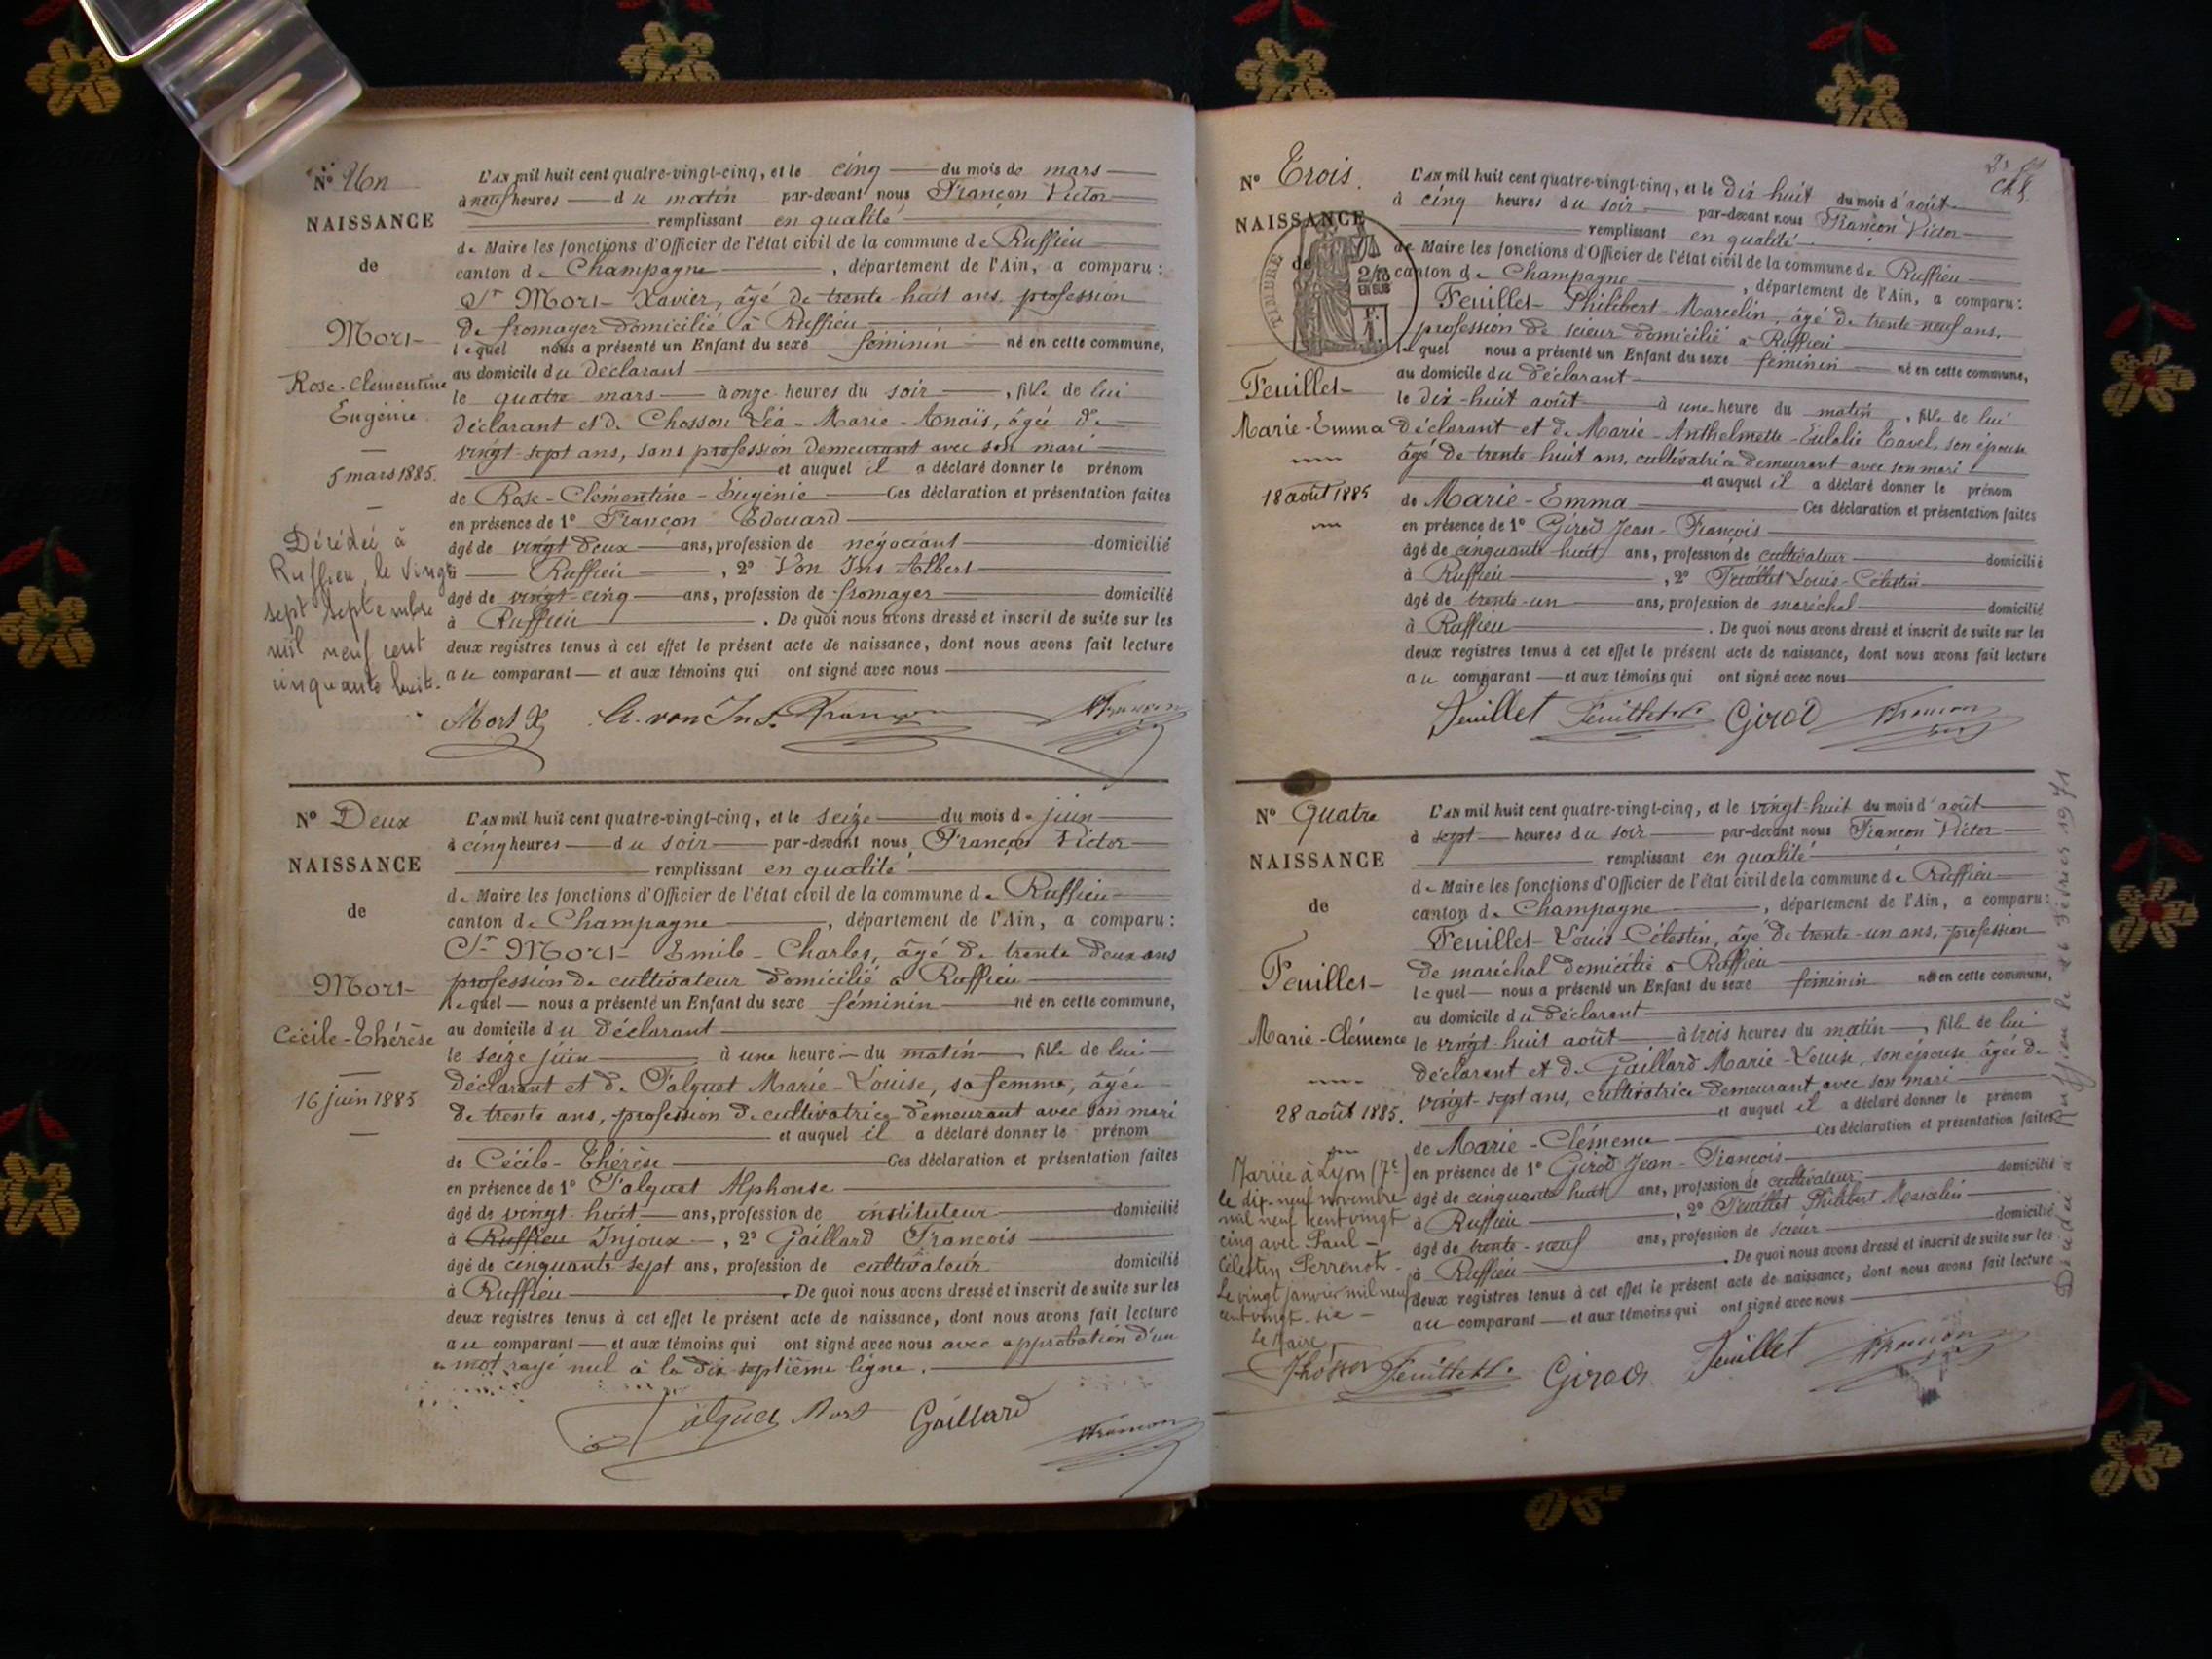 N° Un
NAISSANCE
de
Mort
Rose-Clémentine
Eugénie
5 mars 1885.
Décédée à
Ruffieu, le vingt
sept septembre
mil neuf cent
cinquante huit.
L'AN mil huit cent quatre-vingt-cinq, et le cinq du mois de mars
à neuf heures du matin par-devant nous Françon Victor
remplissant en qualité
de Maire les fonctions d'Officier de l'état civil de la commune de Ruffieu
canton de Champagne, département de l'Ain, a comparu :
Sr Mort Xavier, âgé de trente-huit ans, profession
de fromager domicilié à Ruffieu
lequel nous a présenté un Enfant du sexe féminin né en cette commune,
au domicile du déclarant
le quatre mars à onze heures du soir, fille de lui
déclarant et de Chosson Léa-Marie-Anaïs, âgée de
vingt-sept ans, sans profession demeurant avec son mari
et auquel il a déclaré donner le prénom
de Rose-Clémentine-Eugénie Ces déclaration et présentation faites
en présence de 1° Françon Edouard
âgé de vingt deux ans, profession de négociant domicilié
à Ruffieu, 2° Von Ins Albert
âgé de vingt-cinq ans, profession de fromager domicilié
à Ruffieu. De quoi nous avons dressé et inscrit de suite sur les
deux registres tenus à cet effet le présent acte de naissance, dont nous avons fait lecture
au comparant et aux témoins qui ont signé avec nous
Mort X. A. von Ins. Françon Françon
N° Deux
NAISSANCE
de
Mort
Cécile-Thérèse
16 juin 1885
L'AN mil huit cent quatre-vingt-cinq, et le seize du mois de juin
à cinq heures du soir par-devant nous Françon Victor
remplissant en qualité
de Maire les fonctions d'Officier de l'état civil de la commune de Ruffieu
canton de Champagne, département de l'Ain, a comparu :
Sr Mort Emile-Charles, âgé de trente deux ans
profession de cultivateur domicilié à Ruffieu
lequel nous a présenté un Enfant du sexe féminin né en cette commune,
au domicile du déclarant
le seize juin à une heure du matin, fille de lui
déclarant et de Falquet Marie-Louise, sa femme, âgée
de trente ans, profession de cultivatrice demeurant avec son mari
et auquel il a déclaré donner le prénom
de Cécile-Thérèse Ces déclaration et présentation faites
en présence de 1° Falquet Alphonse
âgé de vingt huit ans, profession de instituteur domicilié
à Ruffieu Injoux, 2° Gaillard François
âgé de cinquante sept ans, profession de cultivateur domicilié
à Ruffieu. De quoi nous avons dressé et inscrit de suite sur les
deux registres tenus à cet effet le présent acte de naissance, dont nous avons fait lecture
au comparant et aux témoins qui ont signé avec nous avec approbation d'un
mot rayé nul à la dix septième ligne.
Falquet Mort Gaillard Françon
N° Trois.
NAISSANCE
de
Feuillet
Marie-Emma
18 août 1885
L'AN mil huit cent quatre-vingt-cinq, et le dix huit du mois d'août
à cinq heures du soir par-devant nous Françon Victor
remplissant en qualité
de Maire les fonctions d'Officier de l'état civil de la commune de Ruffieu
canton de Champagne, département de l'Ain, a comparu :
Feuillet Philibert-Marcelin, âgé de trente-neuf ans,
profession de scieur domicilié à Ruffieu
lequel nous a présenté un Enfant du sexe féminin né en cette commune,
au domicile du déclarant
le dix-huit août à une heure du matin, fille de lui
déclarant et de Marie-Anthelmette-Eulalie Tavel, son épouse
âgé de trente huit ans, cultivatrice demeurant avec son mari
et auquel il a déclaré donner le prénom
de Marie-Emma Ces déclaration et présentation faites
en présence de 1° Girod Jean-François
âgé de cinquante-huit ans, profession de cultivateur domicilié
à Ruffieu, 2° Feuillet Louis-Célestin
âgé de trente-un ans, profession de maréchal domicilié
à Ruffieu. De quoi nous avons dressé et inscrit de suite sur les
deux registres tenus à cet effet le présent acte de naissance, dont nous avons fait lecture
au comparant et aux témoins qui ont signé avec nous
Feuillet Feuillet Girod Françon
TIMBRE
EN SUS
N° Quatre
NAISSANCE
de
Feuillet
Marie-Clémence
28 août 1885.
Mariée à Lyon (7e)
le dix-neuf novembre
mil neuf cent vingt
cinq avec Paul
Célestin Perrenot
Le vingt janvier mil neuf
cent vingt-six
Le Maire,
Chosson
L'AN mil huit cent quatre-vingt-cinq, et le vingt-huit du mois d'août
à sept heures du soir par-devant nous Françon Victor
remplissant en qualité
de Maire les fonctions d'Officier de l'état civil de la commune de Ruffieu
canton de Champagne, département de l'Ain, a comparu :
Feuillet Louis-Célestin, âgé de trente-un ans, profession
de maréchal domicilié à Ruffieu
lequel nous a présenté un Enfant du sexe féminin né en cette commune,
au domicile du déclarant
le vingt huit août à trois heures du matin, fille de lui
déclarant et de Gaillard Marie-Louise, son épouse âgée de
vingt-sept ans, cultivatrice demeurant avec son mari
et auquel il a déclaré donner le prénom
de Marie-Clémence Ces déclaration et présentation faites
en présence de 1° Girod Jean-François
âgé de cinquante huit ans, profession de cultivateur domicilié
à Ruffieu, 2° Feuillet Philibert Marcelin
âgé de trente-neuf ans, profession de scieur domicilié
à Ruffieu. De quoi nous avons dressé et inscrit de suite sur les
deux registres tenus à cet effet le présent acte de naissance, dont nous avons fait lecture
au comparant et aux témoins qui ont signé avec nous
Feuillet Girod Feuillet Françon
Décédée à Ruffieu le 26 février 1971